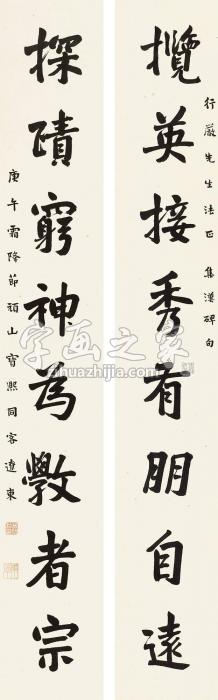 行嚴先生法正 集漢碑句
攬英接秀有朋自遠
探賾窮神為斆者宗
庚午霜降節頑山寶熙同客遼東
字画之家